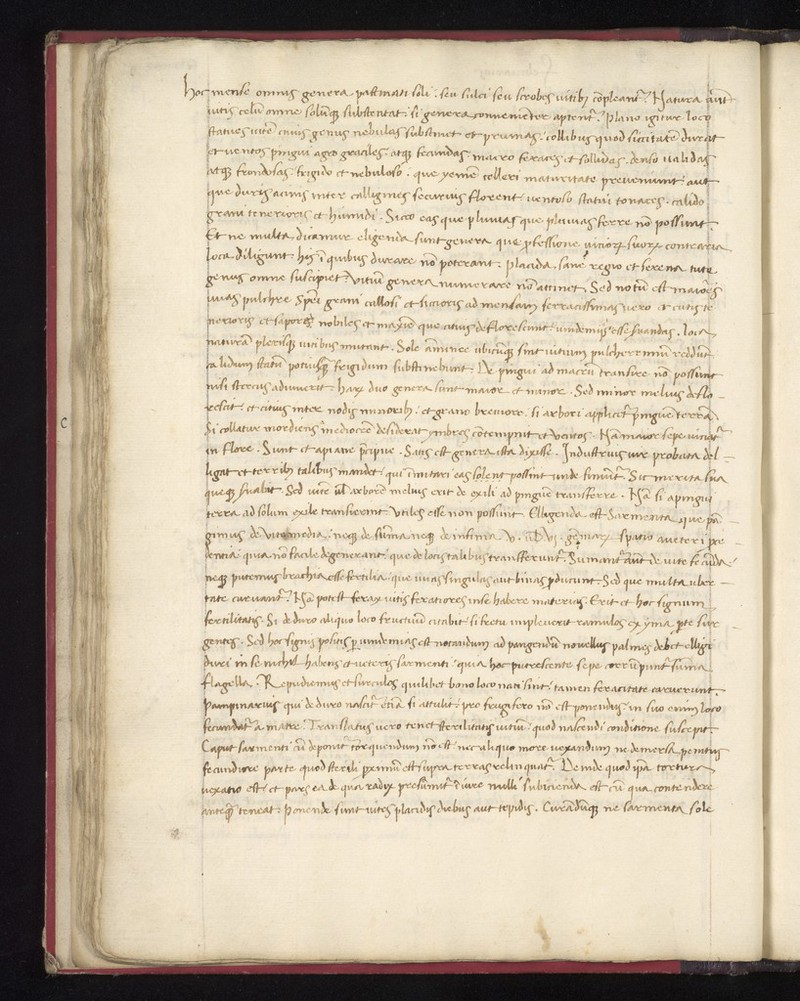 Hoc mense omnis genera pastinati soli. seu sulci seu scrobes vitibz cōpleant². Natura aūt
vitis celū omne solūqʒ substentat. si genera convenienter aptent². Plano igitur loco
statues vitē cuius genus nebulas substinet et pruinas. collibus quod siccitatē durat
et ventos pingui agro graciles. atqʒ fecundas macro feraces et sollidas. denso validas
atqʒ frondosas. frigido et nebuloso. que yemē celleri maturitate preveniunt aut
que duris acinis inter calligines securius florent. ventoso statui tonaces. calido
grani tenerioris et humidi. Sicco eas que pluvias ferre nō possunt.
Et ne multa dicamus eligenda sunt genera que pfessione vicioꝝ suoꝝ contraria
loca diligunt. his ī quibus durare nō poterant. placida sane regio et serena tuto
genus omne suscipiet. Vitiū genera numerare nō attinet. Sed notū est maiores
uvas pulchre spēi grani callosi et siccioris ad mensam ferracissimas vero et cutis te
nerioris et saporis nobiles et maxīe que citius deflorescunt. vindemiis esse servandas. loca
naturā plerisqʒ vitibus mutant. Sole aminee ubicūqʒ sint vitium pulcherrimū reddūt
calidum statū potiusqʒ frigidum substinebunt. De pingui ad macrū transire nō possunt
nisi stercus adiuverit. harū duo genera sunt maior et minor. Sed minor melius deflo
rescit. et citius inter nodis minoribz. et grano breviore. si arbori applicet² pingue terrā
si collature mordiens mediocrē desiderat ymbres cōtempnit et ventos. Nā maior sepe viciat²
in flore. Sunt et apiane precipue. Satis est genera ista dixisse. Industrius vir probata del
ligat et terribz talibus mandet qui imitari eas solent possint unde sumūt². Sic merita sua
queqʒ servabit. Sed vitē ul arborē melius erit de exili ad pingue transferre. Nā si a pingui
terra ad solum exile transierint utiles esse non possunt. Elligenda est Sarmenta que pā
gimus de vite media. neqʒ de sūma neqʒ de infima v. ul vi. gemarꝝ spatio a veteri pre
dentia quia nō facile degenerant que de locis talibus transferunt². Sumant² aūt de vite fecūda
neqʒ putemus brachia esse fertilia que uvas singulas aut binas pducunt. Sed que multa uber
tate curvant². Nā potest ferax vitis feratiores in se habere materias. Erit et hoc signum
fertilitatis. Si de duro aliquo loco fructum citabit. si fectu impleverit ramulos ex yma pte sur
gentes. Sed hoc signis positis p vindemias est notandum ad pangendū novellus palmes debet elligi
duri in se nichil habens et veteris sarmenti quia hoc putrescente sepe corrūpunt² sūma
flagella. Repudiemus et surculos quilibet bono loco nati sint. tamen feracitate caruerunt.
Pampinarius qui de duro nascit² etiā si attulit pro frugifero nō est ponendus in suo enim loco
fecundat² a matre. Translatus vero tenet sterilitatis vitiū quod nascendi conditione suscepit.
Caput sarmenti cū deponit² torquendum nō est nec aliquo more vexandum ne demersa penitus
fecundiore parte quod sterili pximū est supra terras relinquat². Deinde quod ipa tortura
vexatio est. et pars ea de qua radix presumit² iniurie nulli subicienda est cū qua contendere
anteqʒ teneat. Ponende sunt vites placidis diebus aut tepidis. Curādūqʒ ne sarmenta sole